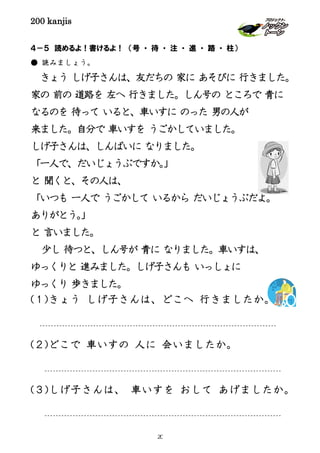 200 kanjis
プロジェクト
4－5 読めるよ！書けるよ！（号 ・ 待 ・ 注 ・ 進 ・ 路 ・ 柱）
● 読みましょう。
きょう しげ子さんは、友だちの 家に あそびに 行きました。
家の 前の 道路を 左へ 行きました。しん号の ところで 青に
なるのを 待って いると、車いすに のった 男の人が
来ました。自分で 車いすを うごかしていました。
しげ子さんは、しんぱいに なりました。
「一人で、だいじょうぶですか。」
と 聞くと、その人は、
「いつも 一人で うごかして いるから だいじょうぶだよ。
ありがとう。」
と 言いました。
少し 待つと、しん号が 青に なりました。車いすは、
ゆっくりと 進みました。しげ子さんも いっしょに
ゆっくり 歩きました。
(1)きょう しげ子さんは、どこへ 行きましたか。
(2)どこで 車いすの 人に 会いましたか。
(3)しげ子さんは、 車いすを おして あげましたか。